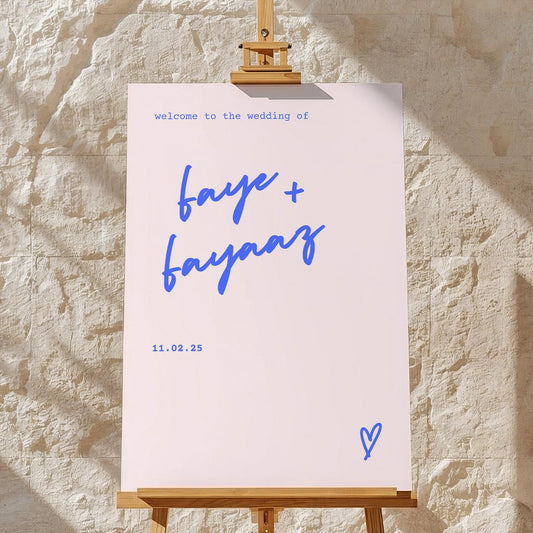 welcome to the wedding of
faye +
fayaaz
11.02.25